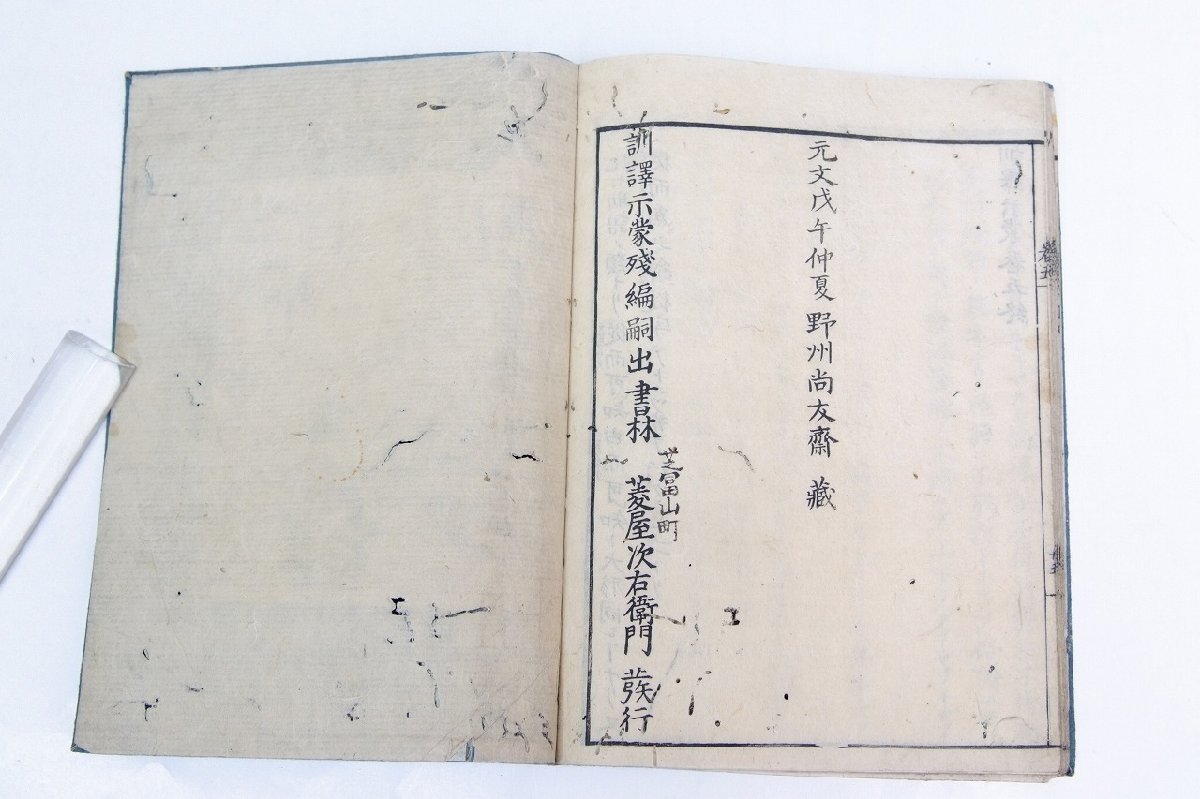 元文戊午仲夏野州尚友齋 藏
芝冨山町
訓譯示蒙殘編嗣出書林 菱屋次右衛門 發行